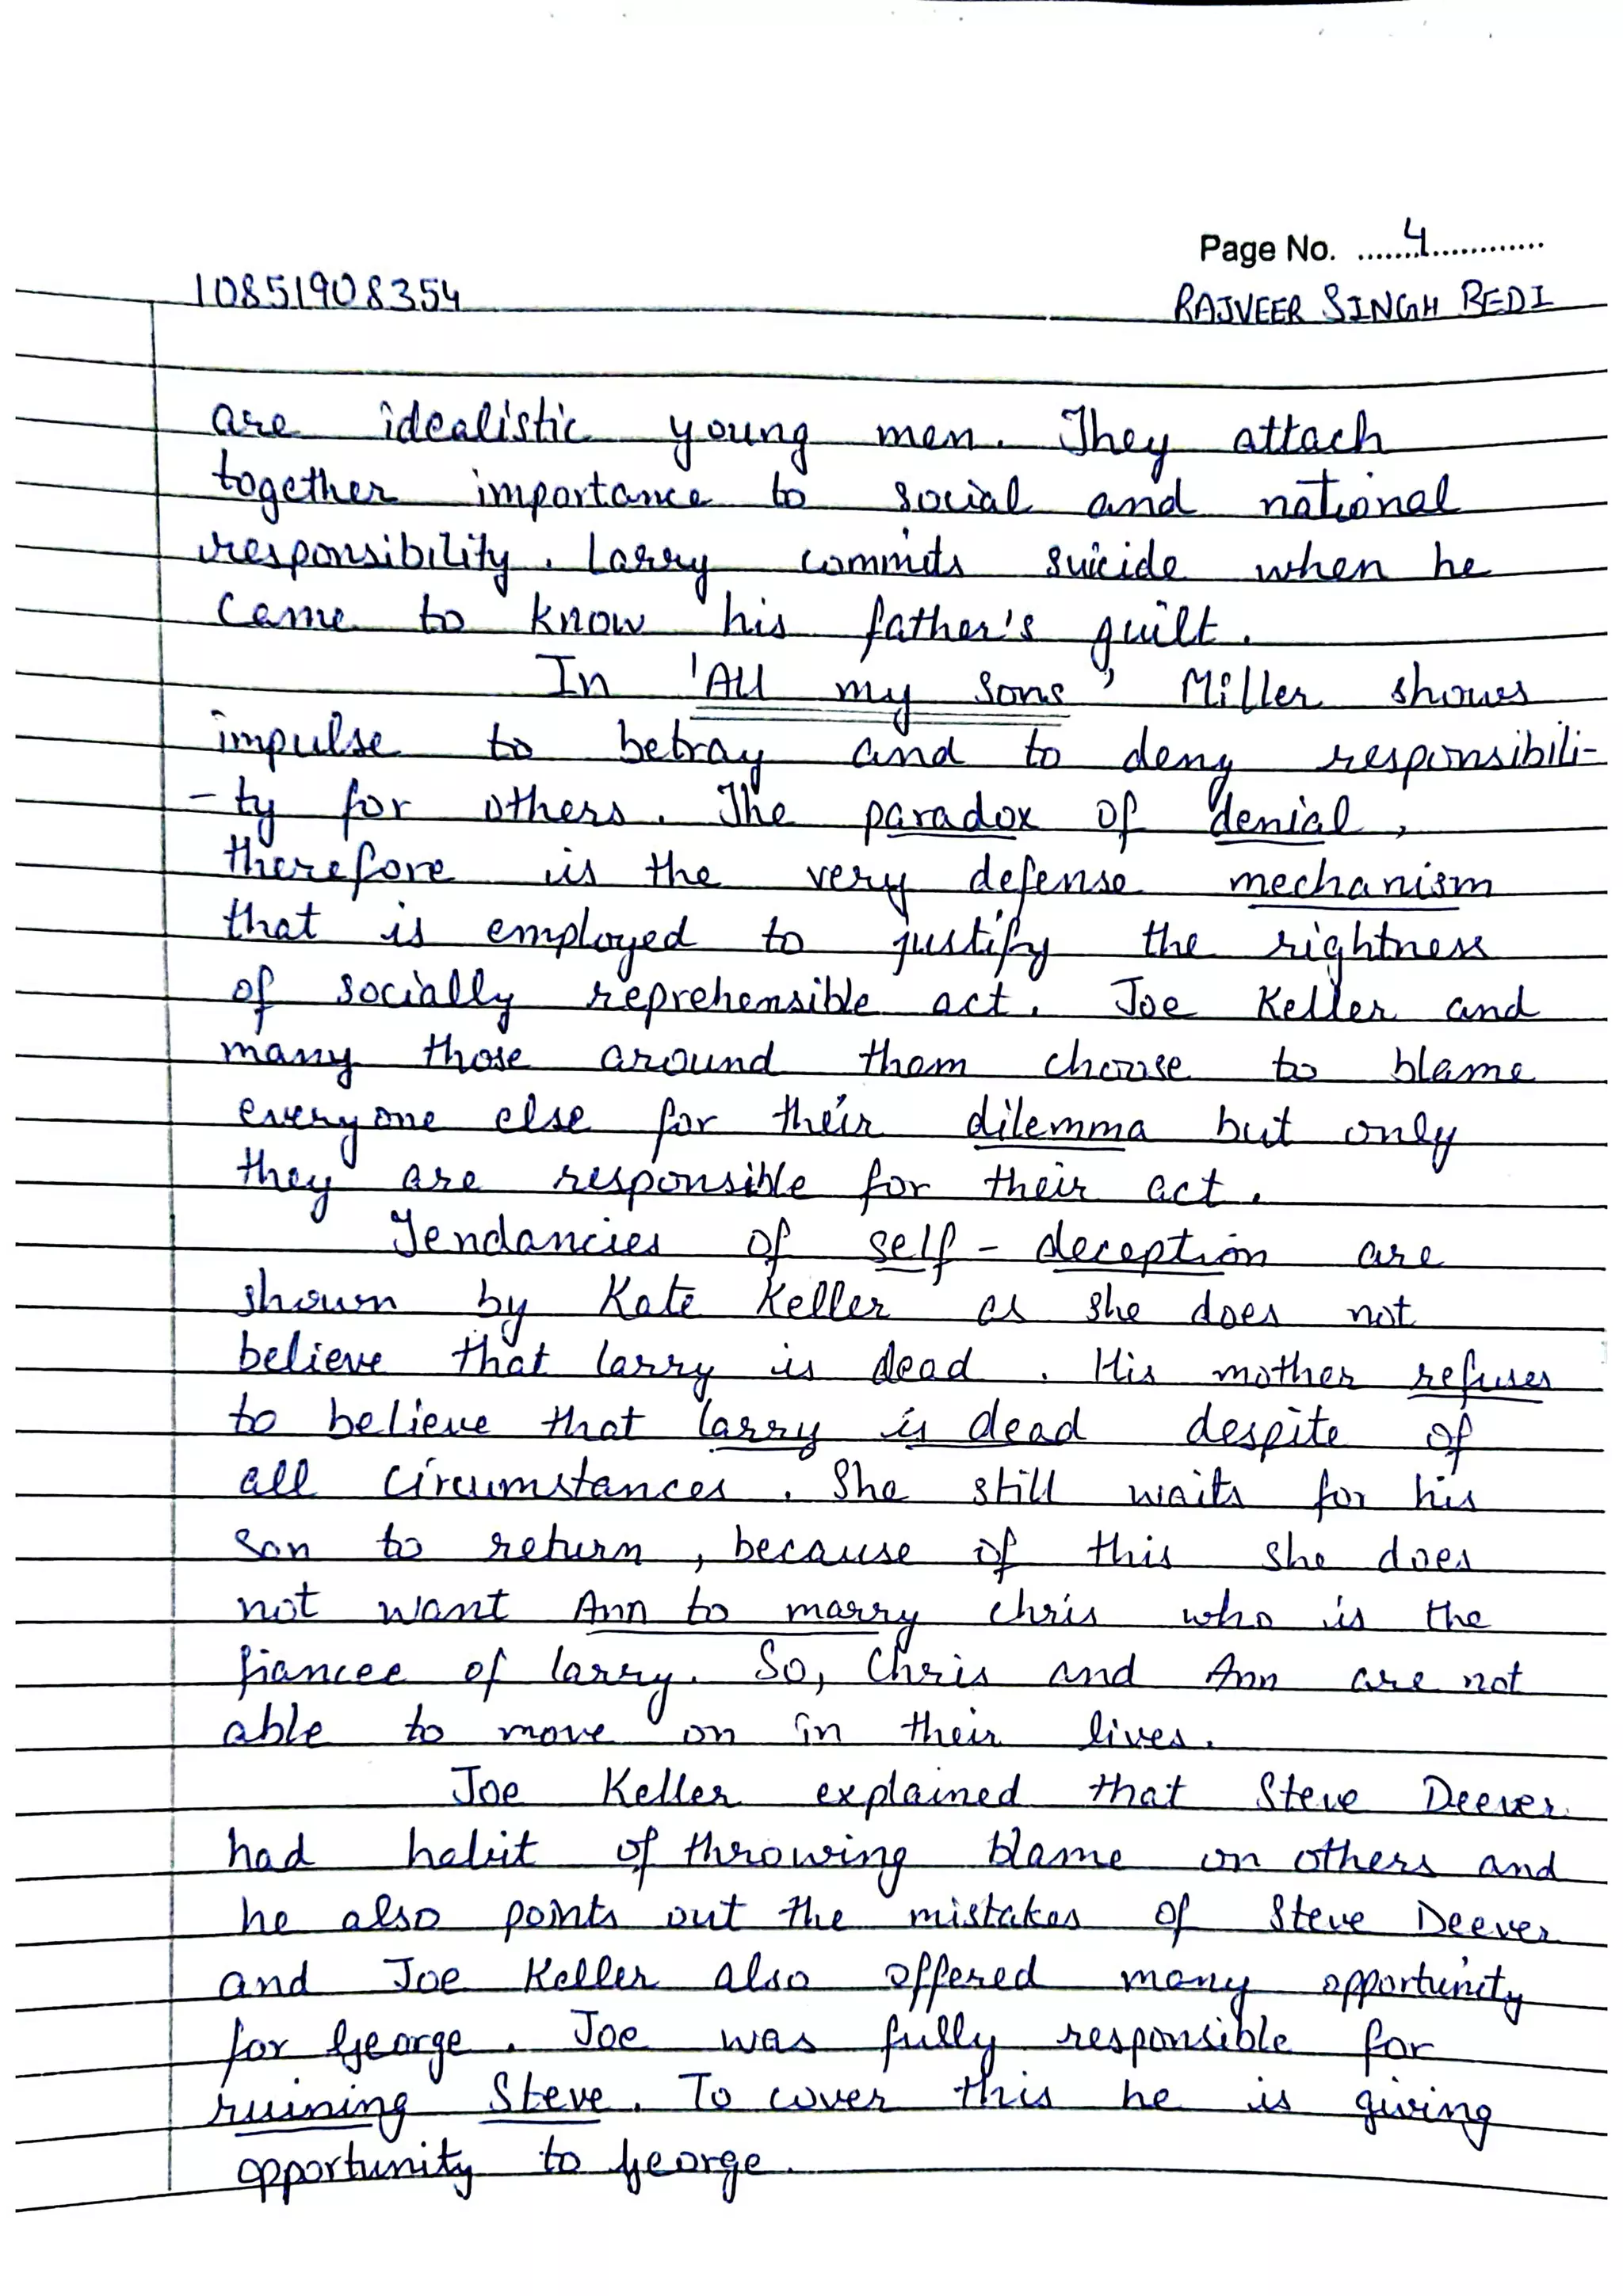 Page No. ......4............
10851908354
RAJVEER SINGH BEDI
are idealistic young men. They attach
together importance to social and national
responsibility. Larry commits suicide when he
came to know his father's guilt.
In 'All my sons' Miller shows
impulse to betray and to deny responsibili-
-ty for others. The paradox of denial,
therefore is the very defense mechanism
that is employed to justify the rightness
of socially reprehensible act. Joe Keller and
many those around them choose to blame
everyone else for their dilemma but only
they are responsible for their act.
Tendancies of self-deception are
shown by Kate Keller as she does not
believe that larry is dead. His mother refuses
to believe that larry is dead despite of
all circumstances. She still waits for his
son to return, because of this she does
not want Ann to marry chris who is the
fiancee of larry. So, Chris and Ann are not
able to move on in their lives.
Joe Keller explained that Steve Deever
had habit of throwing blame on others and
he also points out the mistakes of Steve Deever
and Joe Keller also offered many opportunity
for George. Joe was fully responsible for
ruining Steve. To cover this he is giving
opportunity to George.